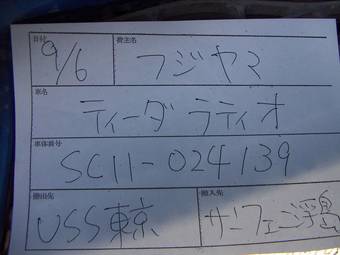 日付 荷主名
9/6 フジヤマ
車名
ティーダ ラティオ
車体番号
SC11-024139
搬出先 搬入先
USS東京 サンフェニ浮島